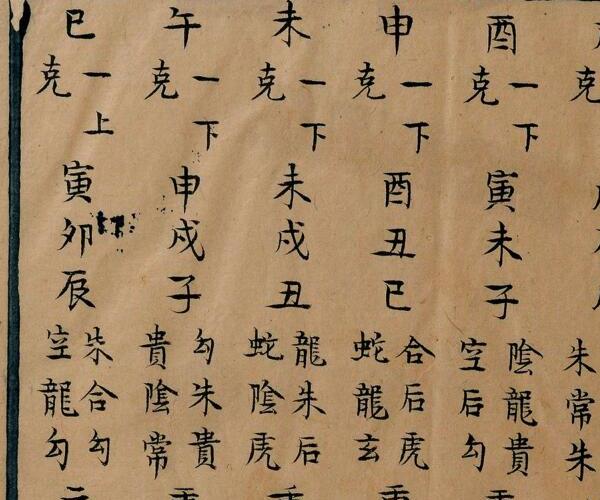 克
朱常朱
酉
一下
克
寅未子
陰龍貴
空后勾
申
一下
克
酉丑巳
合后虎
蛇龍玄
未
一下
克
未戌丑
龍朱后
蛇陰虎
午
一下
克
申戌子
勾朱貴
貴陰常
巳
一上
克
寅卯辰
朱合勾
空龍勾